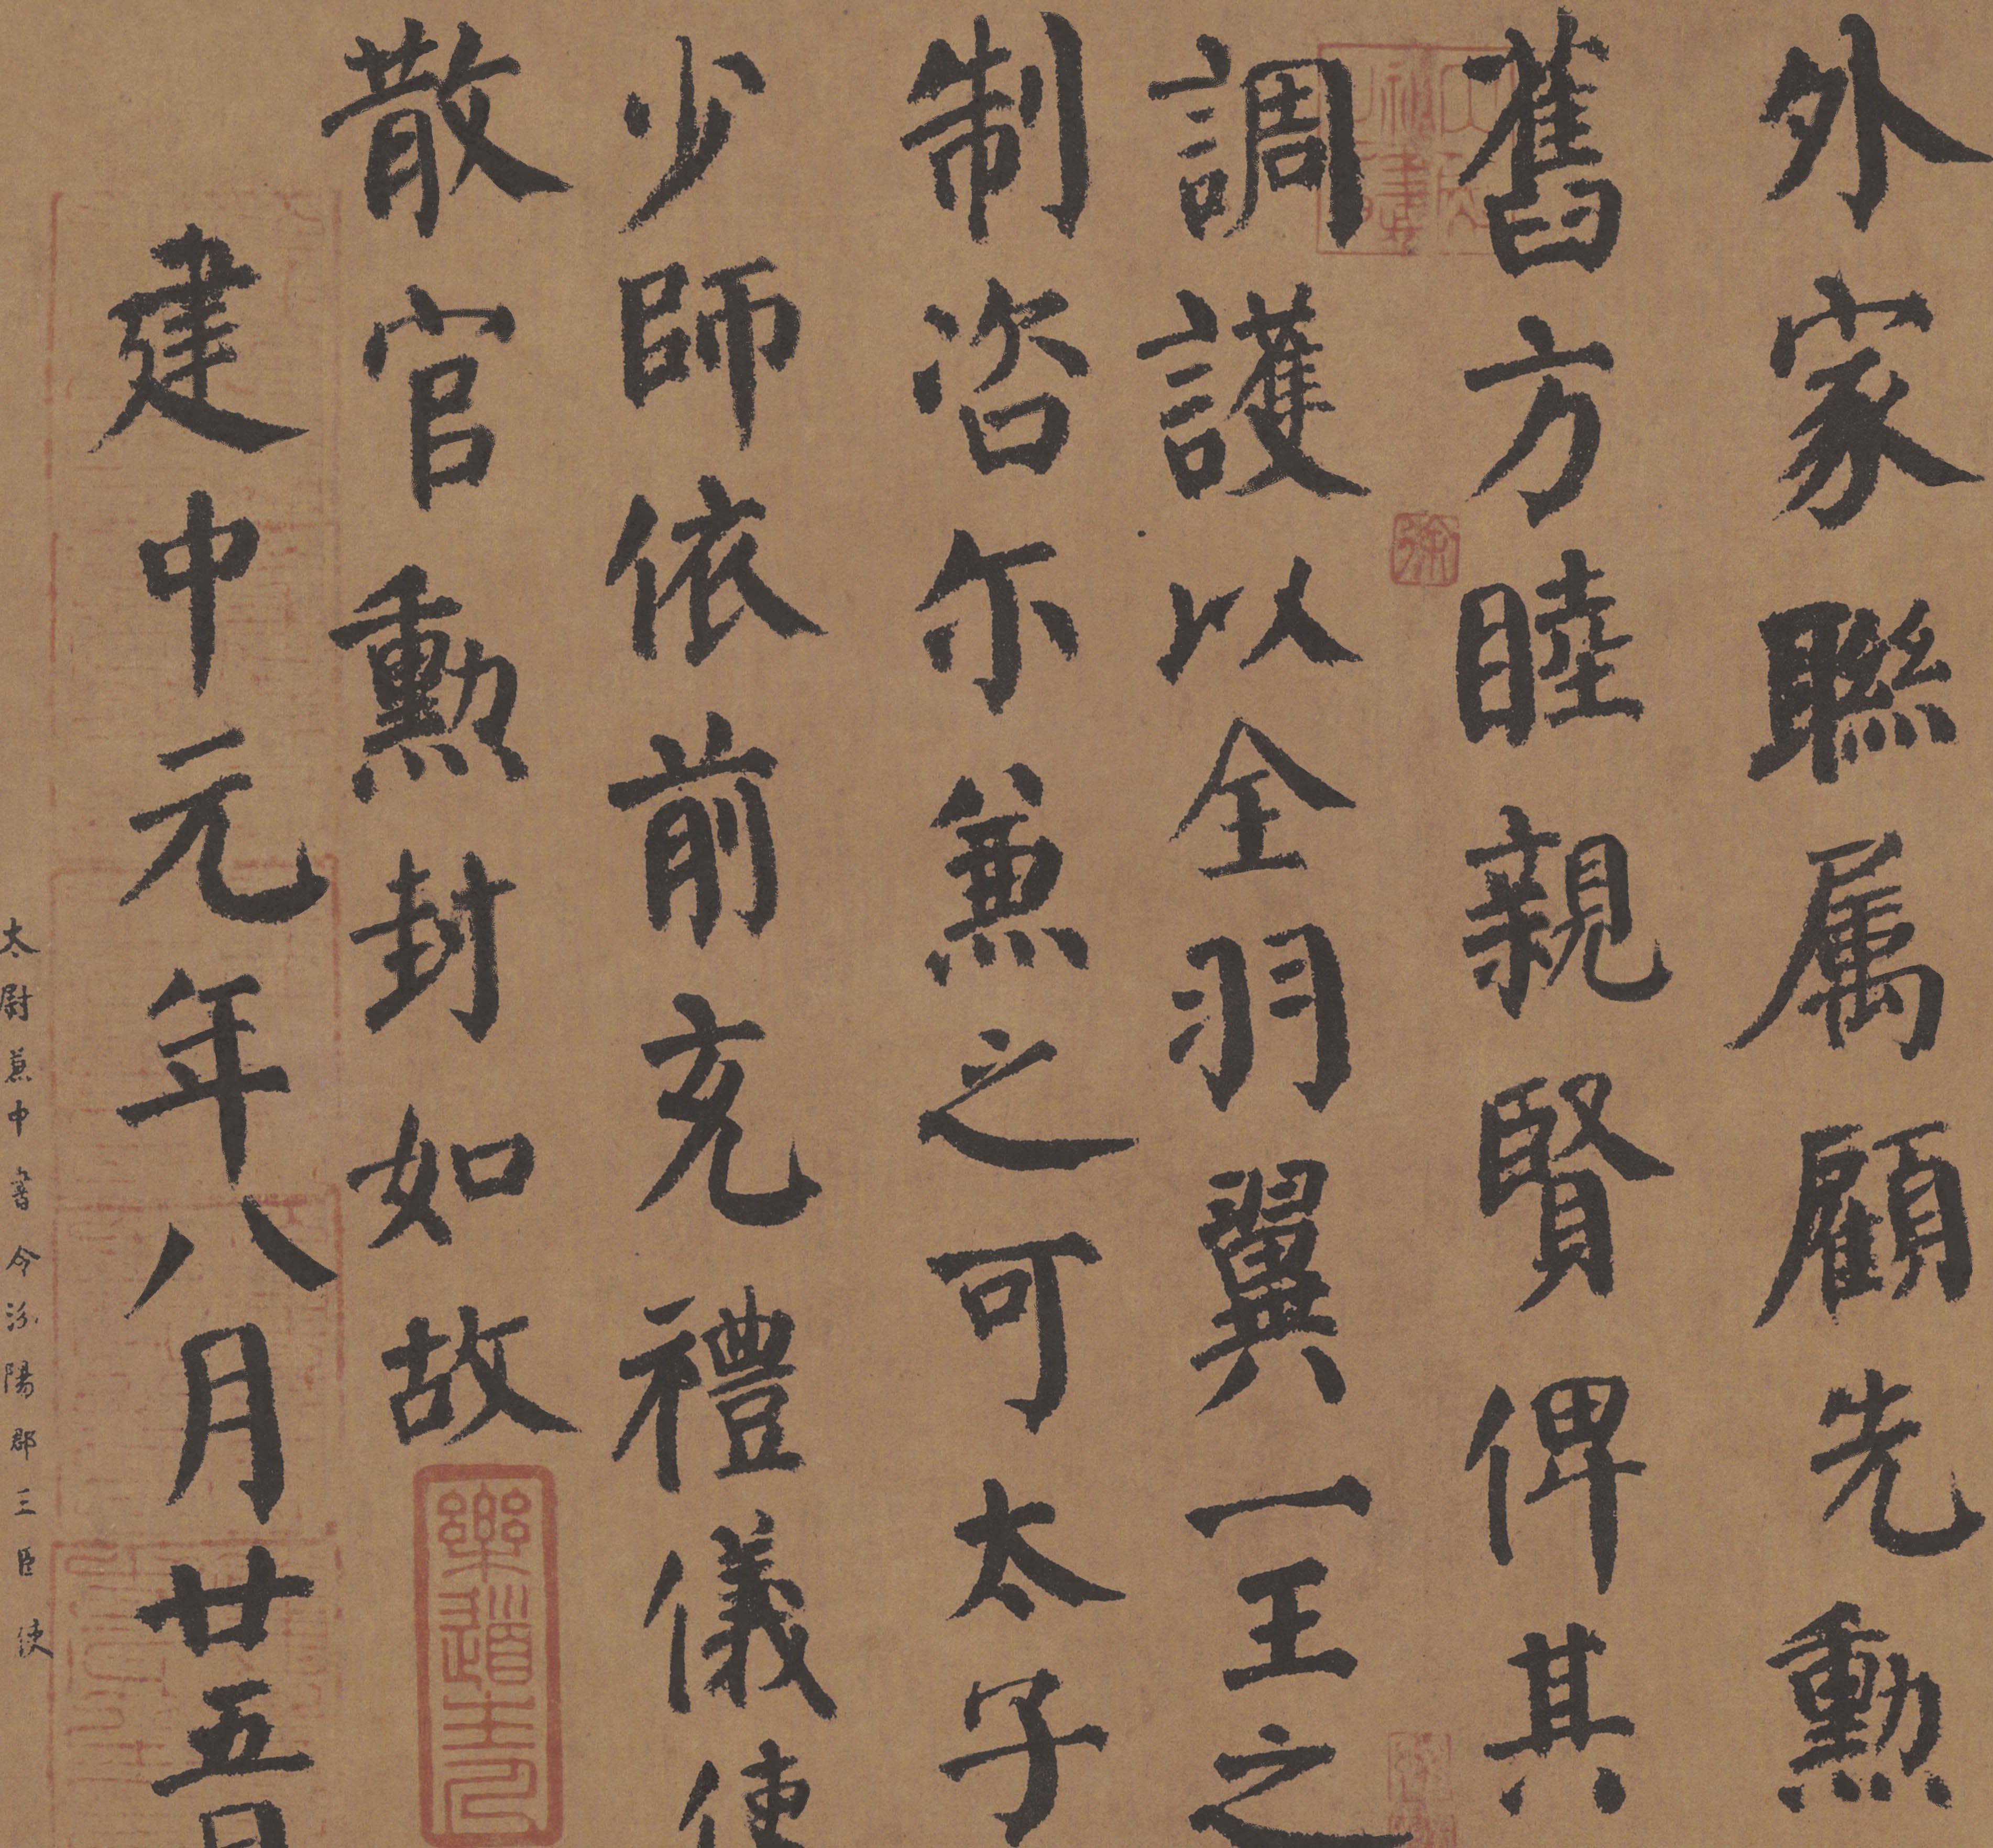 外家聯属顧先勲
舊方睦親賢俾其
調護以全羽翼一王之
制咨尔兼之可太子
少師依前充禮儀使
散官勲封如故
建中元年八月廿五日
太尉兼中書令汾陽郡王臣使
樂道主人